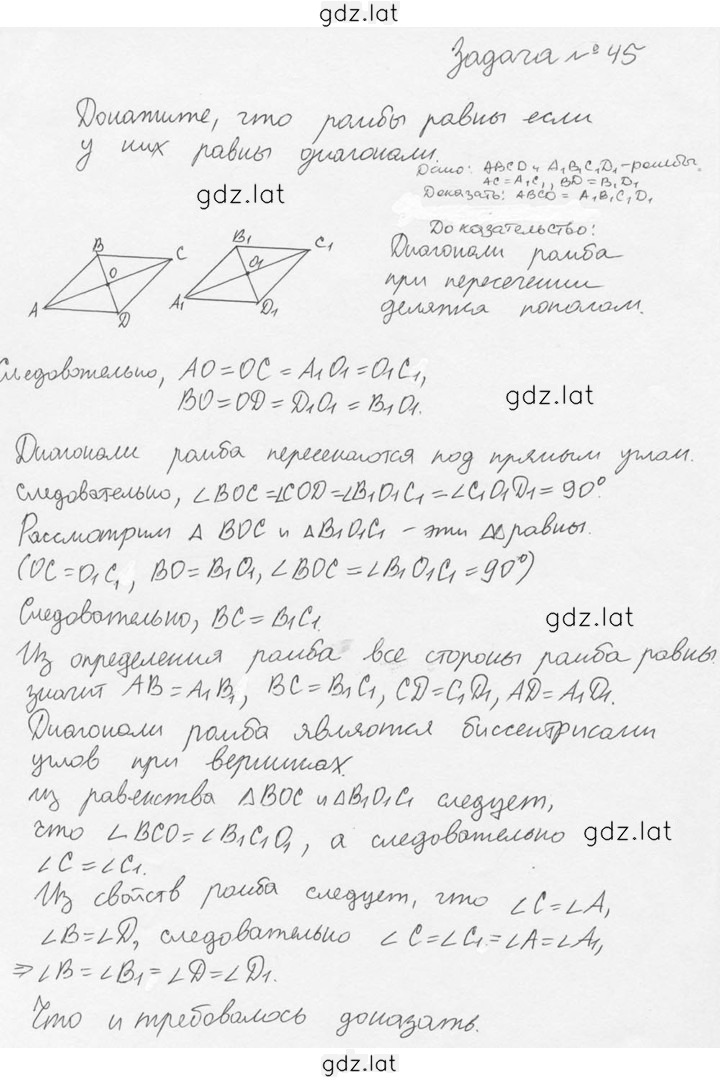 gdz.lat
Задача №45
Докажите, что ромбы равны если
у них равны диагонали.
Дано: ABCD и A₁B₁C₁D₁ - ромбы.
AC = A₁C₁, BD = B₁D₁
Доказать: ABCD = A₁B₁C₁D₁
gdz.lat
Доказательство:
Диагонали ромба
при пересечении
делятся пополам.
B C O A D
B₁ C₁ O₁ A₁ D₁
Следовательно, AO = OC = A₁O₁ = O₁C₁,
BO = OD = D₁O₁ = B₁O₁.
gdz.lat
Диагонали ромба пересекаются под прямым углом.
следовательно, ∠BOC = ∠COD = ∠B₁O₁C₁ = ∠C₁O₁D₁ = 90°.
Рассмотрим △ BOC и △B₁O₁C₁ - эти △△ равны.
(OC = O₁C₁, BO = B₁O₁, ∠BOC = ∠B₁O₁C₁ = 90°)
Следовательно, BC = B₁C₁.
gdz.lat
Из определения ромба все стороны ромба равны.
значит AB = A₁B₁, BC = B₁C₁, CD = C₁D₁, AD = A₁D₁.
Диагонали ромба являются биссентрисами
углов при вершинах.
из равенства △BOC и △B₁O₁C₁ следует,
что ∠BCO = ∠B₁C₁O₁, а следовательно
gdz.lat
∠C = ∠C₁.
Из свойств ромба следует, что ∠C = ∠A,
∠B = ∠D, следовательно ∠C = ∠C₁ = ∠A = ∠A₁,
⇒ ∠B = ∠B₁ = ∠D = ∠D₁.
Что и требовалось доказать.
gdz.lat